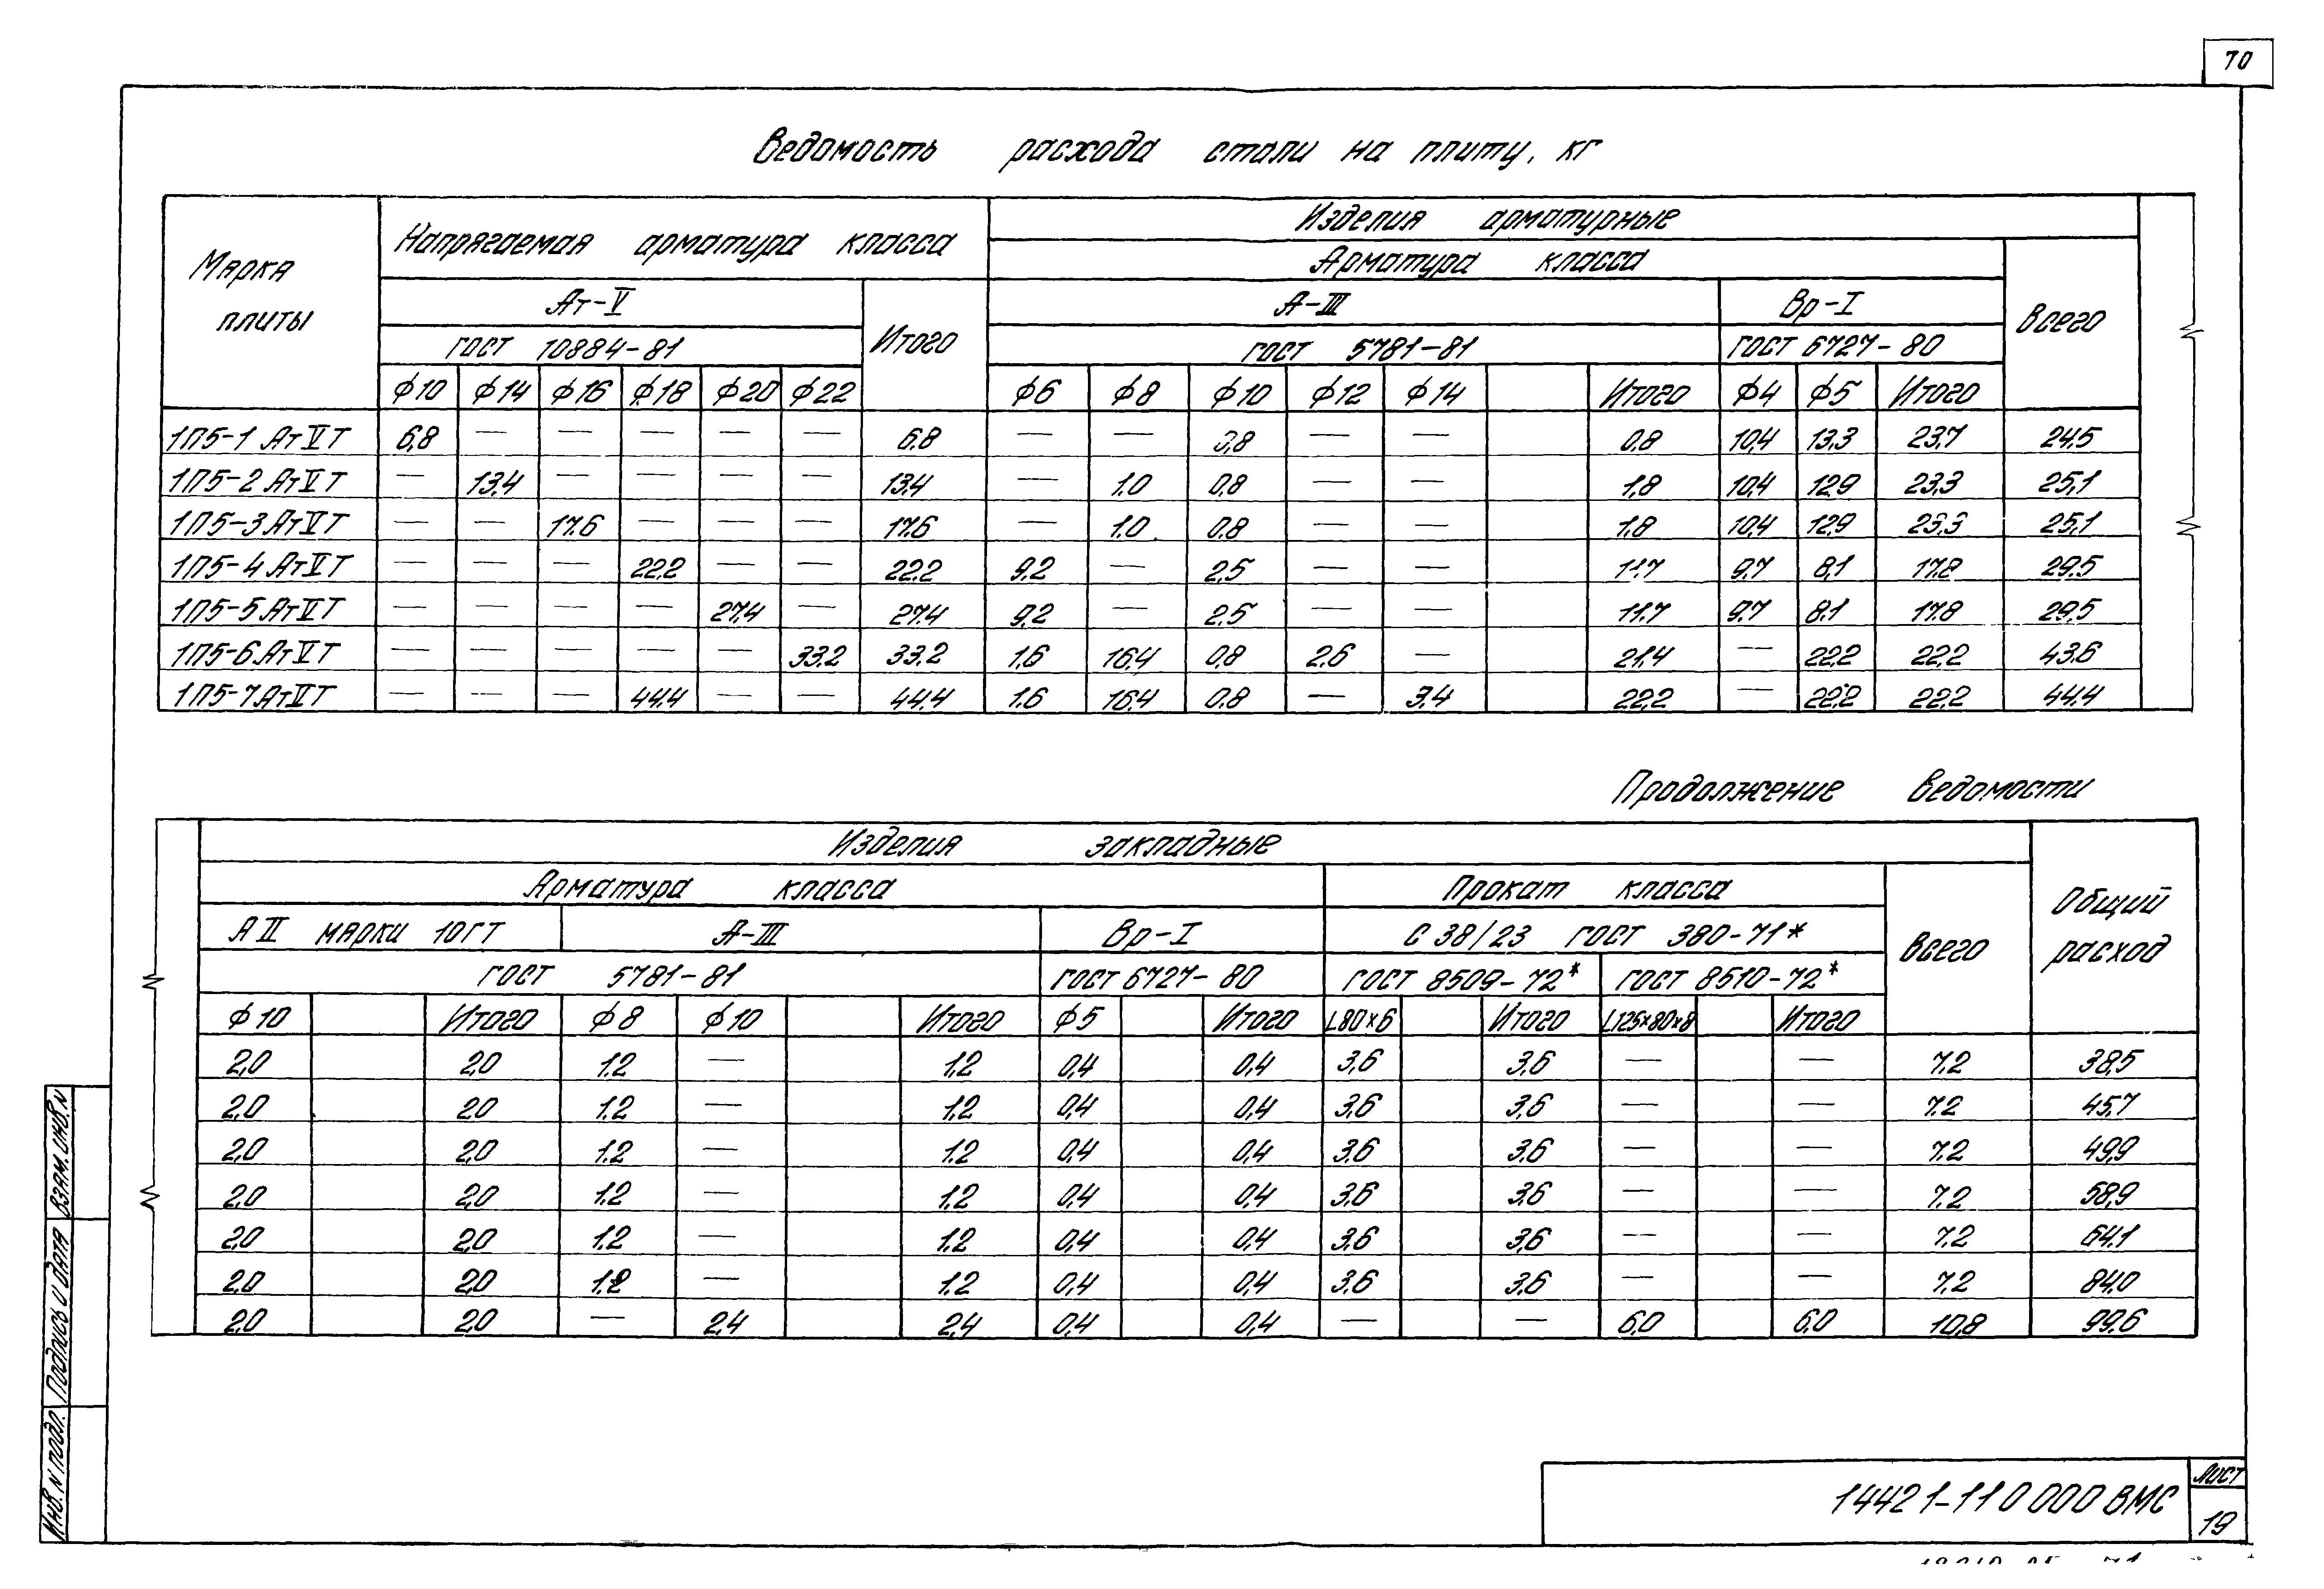 70
Ведомость расхода стали на плиту, кг
Марка плиты
Напрягаемая арматура класса
Изделия арматурные
Арматура класса
Ат-V
Итого
А-III
Вр-I
Всего
ГОСТ 10884-81
ГОСТ 5781-81
ГОСТ 6727-80
ϕ10 ϕ14 ϕ16 ϕ18 ϕ20 ϕ22 ϕ6 ϕ8 ϕ10 ϕ12 ϕ14 Итого ϕ4 ϕ5 Итого
1П5-1 АтVТ 6,8 — — — — — 6,8 — — 0,8 — — 0,8 10,4 13,3 23,7 24,5
1П5-2 АтVТ — 13,4 — — — — 13,4 — 1,0 0,8 — — 1,8 10,4 12,9 23,3 25,1
1П5-3 АтVТ — — 17,6 — — — 17,6 — 1,0 0,8 — — 1,8 10,4 12,9 23,3 25,1
1П5-4 АтVТ — — — 22,2 — — 22,2 9,2 — 2,5 — — 11,7 9,7 8,1 17,8 29,5
1П5-5 АтVТ — — — — 27,4 — 27,4 9,2 — 2,5 — — 11,7 9,7 8,1 17,8 29,5
1П5-6 АтVТ — — — — — 33,2 33,2 1,6 16,4 0,8 2,6 — 21,4 — 22,2 22,2 43,6
1П5-7 АтVТ — — — 44,4 — — 44,4 1,6 16,4 0,8 — 3,4 22,2 — 22,2 22,2 44,4
Продолжение ведомости
Изделия закладные
Общий расход
Арматура класса
Прокат класса
Всего
А II марки 10ГТ
А-III
Вр-I
С 38/23 ГОСТ 380-71*
ГОСТ 5781-81
ГОСТ 6727-80
ГОСТ 8509-72*
ГОСТ 8510-72*
ϕ10 Итого ϕ8 ϕ10 Итого ϕ5 Итого L80×6 Итого L125×80×8 Итого
2,0 2,0 1,2 — 1,2 0,4 0,4 3,6 3,6 — — 7,2 38,5
2,0 2,0 1,2 — 1,2 0,4 0,4 3,6 3,6 — — 7,2 45,7
2,0 2,0 1,2 — 1,2 0,4 0,4 3,6 3,6 — — 7,2 49,9
2,0 2,0 1,2 — 1,2 0,4 0,4 3,6 3,6 — — 7,2 58,9
2,0 2,0 1,2 — 1,2 0,4 0,4 3,6 3,6 — — 7,2 64,1
2,0 2,0 1,2 — 1,2 0,4 0,4 3,6 3,6 — — 7,2 84,0
2,0 2,0 — 2,4 2,4 0,4 0,4 — — 6,0 6,0 10,8 99,6
Взам. инв. N
Подпись и дата
Инв. N подл.
1442 1-110 000 ВМС
Лист
19